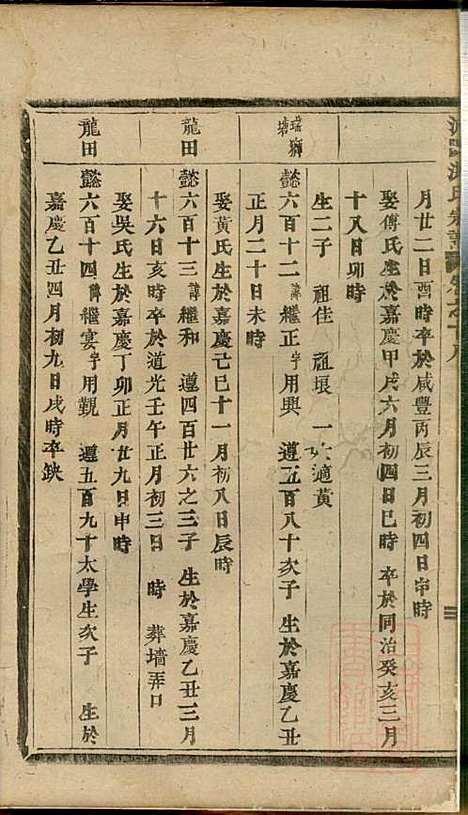 月廿二日酉時卒於咸豐丙辰三月初四日申時
娶傅氏生於嘉慶甲戌六月初四日巳時 卒於同治癸亥三月
十八日卯時
生二子 祖佳 祖垠 一女適黃
懿六百十二 諱繼正 字用興 遵五百八十次子 生於嘉慶乙丑
正月二十日未時
娶黃氏生於嘉慶己巳十一月初八日辰時
龍田
懿六百十三 諱繼和 遵四百廿六之三子 生於嘉慶乙丑三月
十六日亥時卒於道光壬午正月初三日 時 葬墻弄口
娶吳氏生於嘉慶丁卯正月廿九日申時
龍田
懿六百十四 諱繼宴 字用覲 遵五百九十太學生次子 生於
嘉慶乙丑四月初九日戌時卒缺